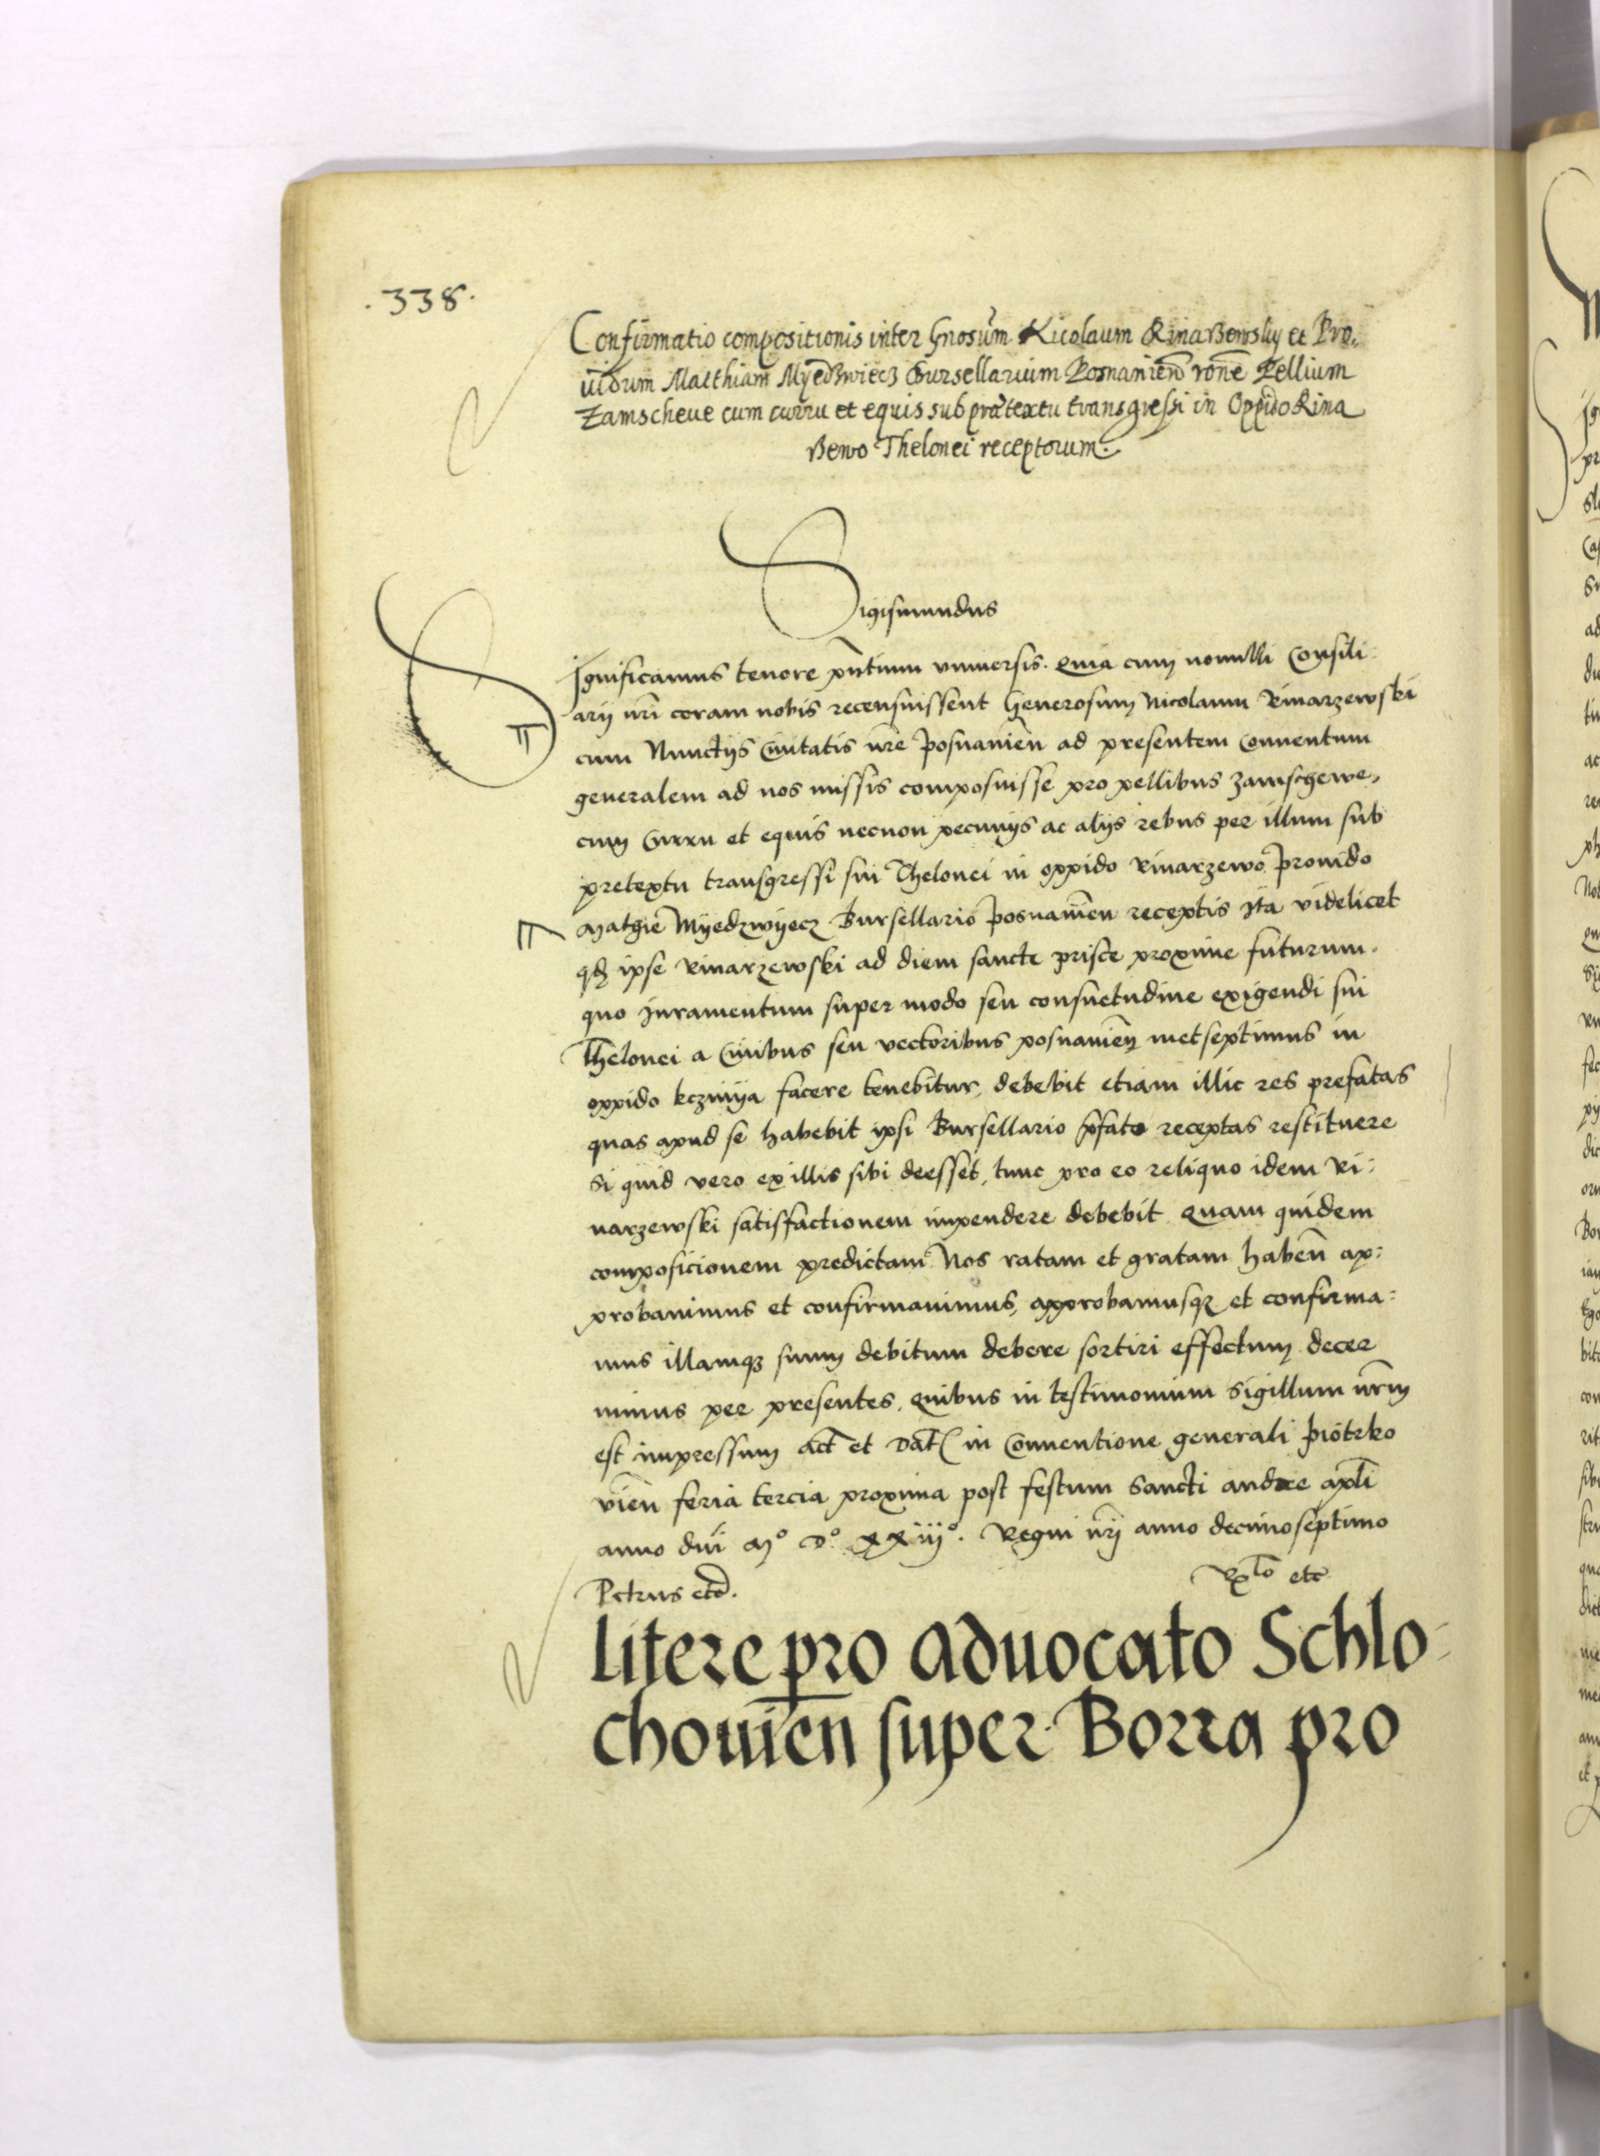 .338.
Confirmatio compositionis inter Gnosum Nicolaum Rinarzewsky et Pro-
uidum Matthiam Myedzwiecz Bursellarium Posnanien rone Pellium
Zamscheue cum curru et equis sub prætextu transgressi in Oppido Rina
rzewo Thelonei receptorum.
Sigismundus
Significamus tenore pntium vniuersis. Quia cum nonnulli Consili-
arij nri coram nobis recensuissent Generosum Nicolaum Rinarzewski
cum Nunctijs Ciuitatis nre Posnanien ad presentem Conuentum
generalem ad nos missis composuisse pro pellibus zamschewe,
cum Curru et equis necnon pecunijs ac alijs rebus per illum sub
pretextu transgressi sui Thelonei in oppido Rinarzewo Prouido
Mathie Myedzwyecz Bursellario Posnanien receptis Ita videlicet
qd ipse Rinarzewski ad diem sancte prisce proxime futurum.
quo Iuramentum super modo seu consuetudine exigendi sui
Thelonei a Ciuibus seu vectoribus posnanien metseptimus in
oppido Kczinya facere tenebitur, debebit etiam illic res prefatas
quas apud se habebit ipsi Bursellario pfato receptas restituere
Si quid vero ex illis sibi deesset, tunc pro eo reliquo idem Ri-
narzewski satisfactionem impendere debebit Quam quidem
composicionem predictam Nos ratam et gratam haben ap-
probauimus et confirmauimus, approbamusqz et confirma-
mus illamqz suum debitum debere sortiri effectum decer
nimus per presentes, Quibus in testimonium Sigillum nrm
est impressum Act et Dat in Conuentione generali Piotrko
vien feria tercia proxima post festum Sancti andree apli
anno dni Mo Do XXiijo. Regni nrj anno decimoseptimo
Petrus etc. Rlo etc
Litere pro aduocato Schlo-
chouien super Borra pro